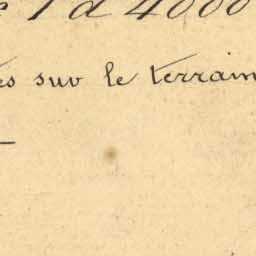 1 à 4000
és sur le terrain